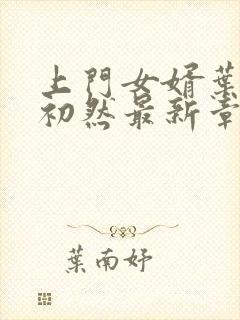 上門女婿葉
初然最新章
葉南妤